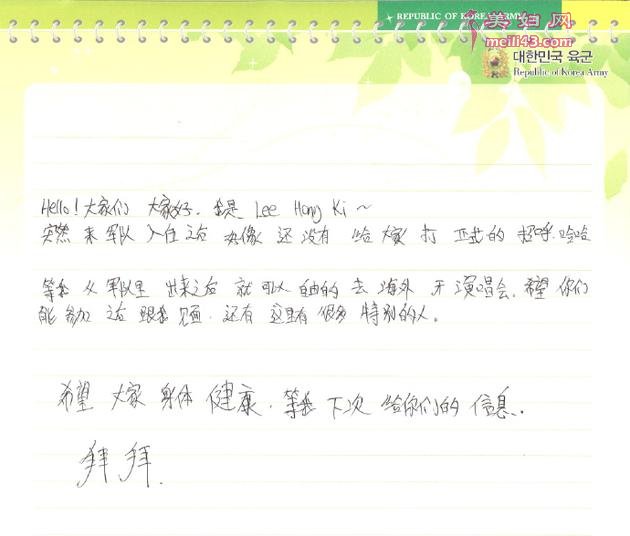 REPUBLIC OF KOREA ARMY
美妇网
meili43.com
대한민국 육군
Republic of Korea Army
Hello! 大家们 大家好. 我是 Lee Hong Ki ~
突然 来 军队 入住 之后 好像 还 没有 给 大家 打 正式的 招呼. 哈哈
等我 从 军队里 出来之后 就 可以 自由的 去 海外 开 演唱会. 希望 你们
能 参加 之后 跟我 见面. 还有 这里有 很多 特别的人。
希望 大家 身体 健康. 等我 下次 给你们的 信息.
拜拜.